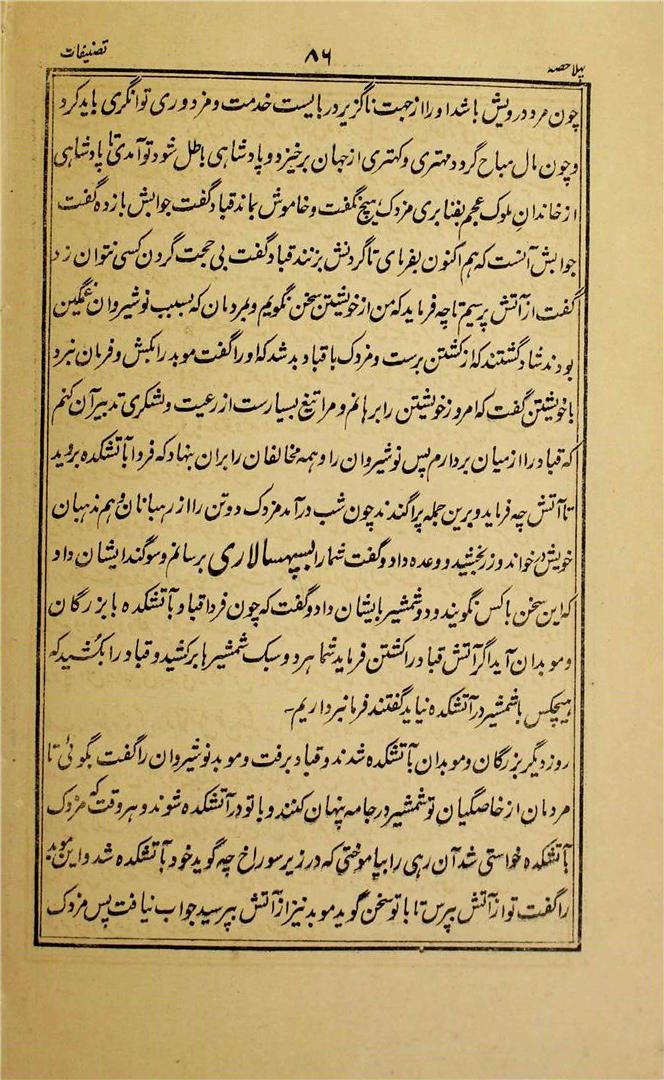 پہلا حصہ ۸۶ تصنیفات
چون مرد درویش باشد اورا از جہت ناگزیر دربایست خدمت و مزدوری توانگری باید کرد
و چون مال مباح گردد مہتری و کہتری از جہان برخیزد و پادشاہی باطل شود تو آمدی تا پادشاہی
از خاندان ملوک عجم بفنا بری مزدک ہیچ نگفت و خاموش بماند قباد گفت جوابش باز دہ گفت
جوابش آنست کہ ہم اکنون بفرمای تا گردنش بزنند قباد گفت بی حجت گردن کسی نتوان زد
گفت از آتش پرسیم تا چہ فرماید کہ من از خویشتن سخن نگویم و مردمان کہ بسبب نوشیروان غمگین
بودند شاد گشتند کہ از کشتن برست و مزدک با قباد بد شد کہ اورا گفت موبد را بکش و فرمان نبرد
با خویشتن گفت کہ امروز خویشتن را برہانم و مرا تبع بسیارست از رعیت و لشکری تدبیر آن کنم
کہ قباد را از میان بردارم پس نوشیروان را و ہمہ مخالفان را بران بنہاد کہ فردا بآتشکدہ بروید
تا آتش چہ فرماید و برین جملہ پراگندند چون شب درآمد مزدک دو تن را از رہبانان و ہم مذہبان
خویش را خواند و زر بخشید و وعدہ داد و گفت شمارا بسپہسالاری برسانم و سوگند ایشان داد
کہ این سخن باکس نگویند و دو شمشیر بایشان داد و گفت کہ چون فردا قباد بآتشکدہ با بزرگان
و موبدان آید اگر آتش قباد را کشتن فرماید شما ہر دو سبک شمشیرہا برکشید و قباد را بکشید کہ
ہیچکس با شمشیر در آتشکدہ نیاید گفتند فرمانبرداریم۔
روز دیگر بزرگان و موبدان بآتشکدہ شدند و قباد برفت و موبد نوشیروان را گفت بگوئی تا
مردمان از خاصگیان تو شمشیر در جامہ پنہان کنند و با تو در آتشکدہ شوند و ہر وقت کہ مزدک
بآتشکدہ خواستی شد آن رہی را بیاموختی کہ در زیر سوراخ چہ گوید خود بآتشکدہ شد و این موبد
را گفت تو از آتش بپرس تا با تو سخن گوید موبد نیز از آتش بپرسید جواب نیافت پس مزدک